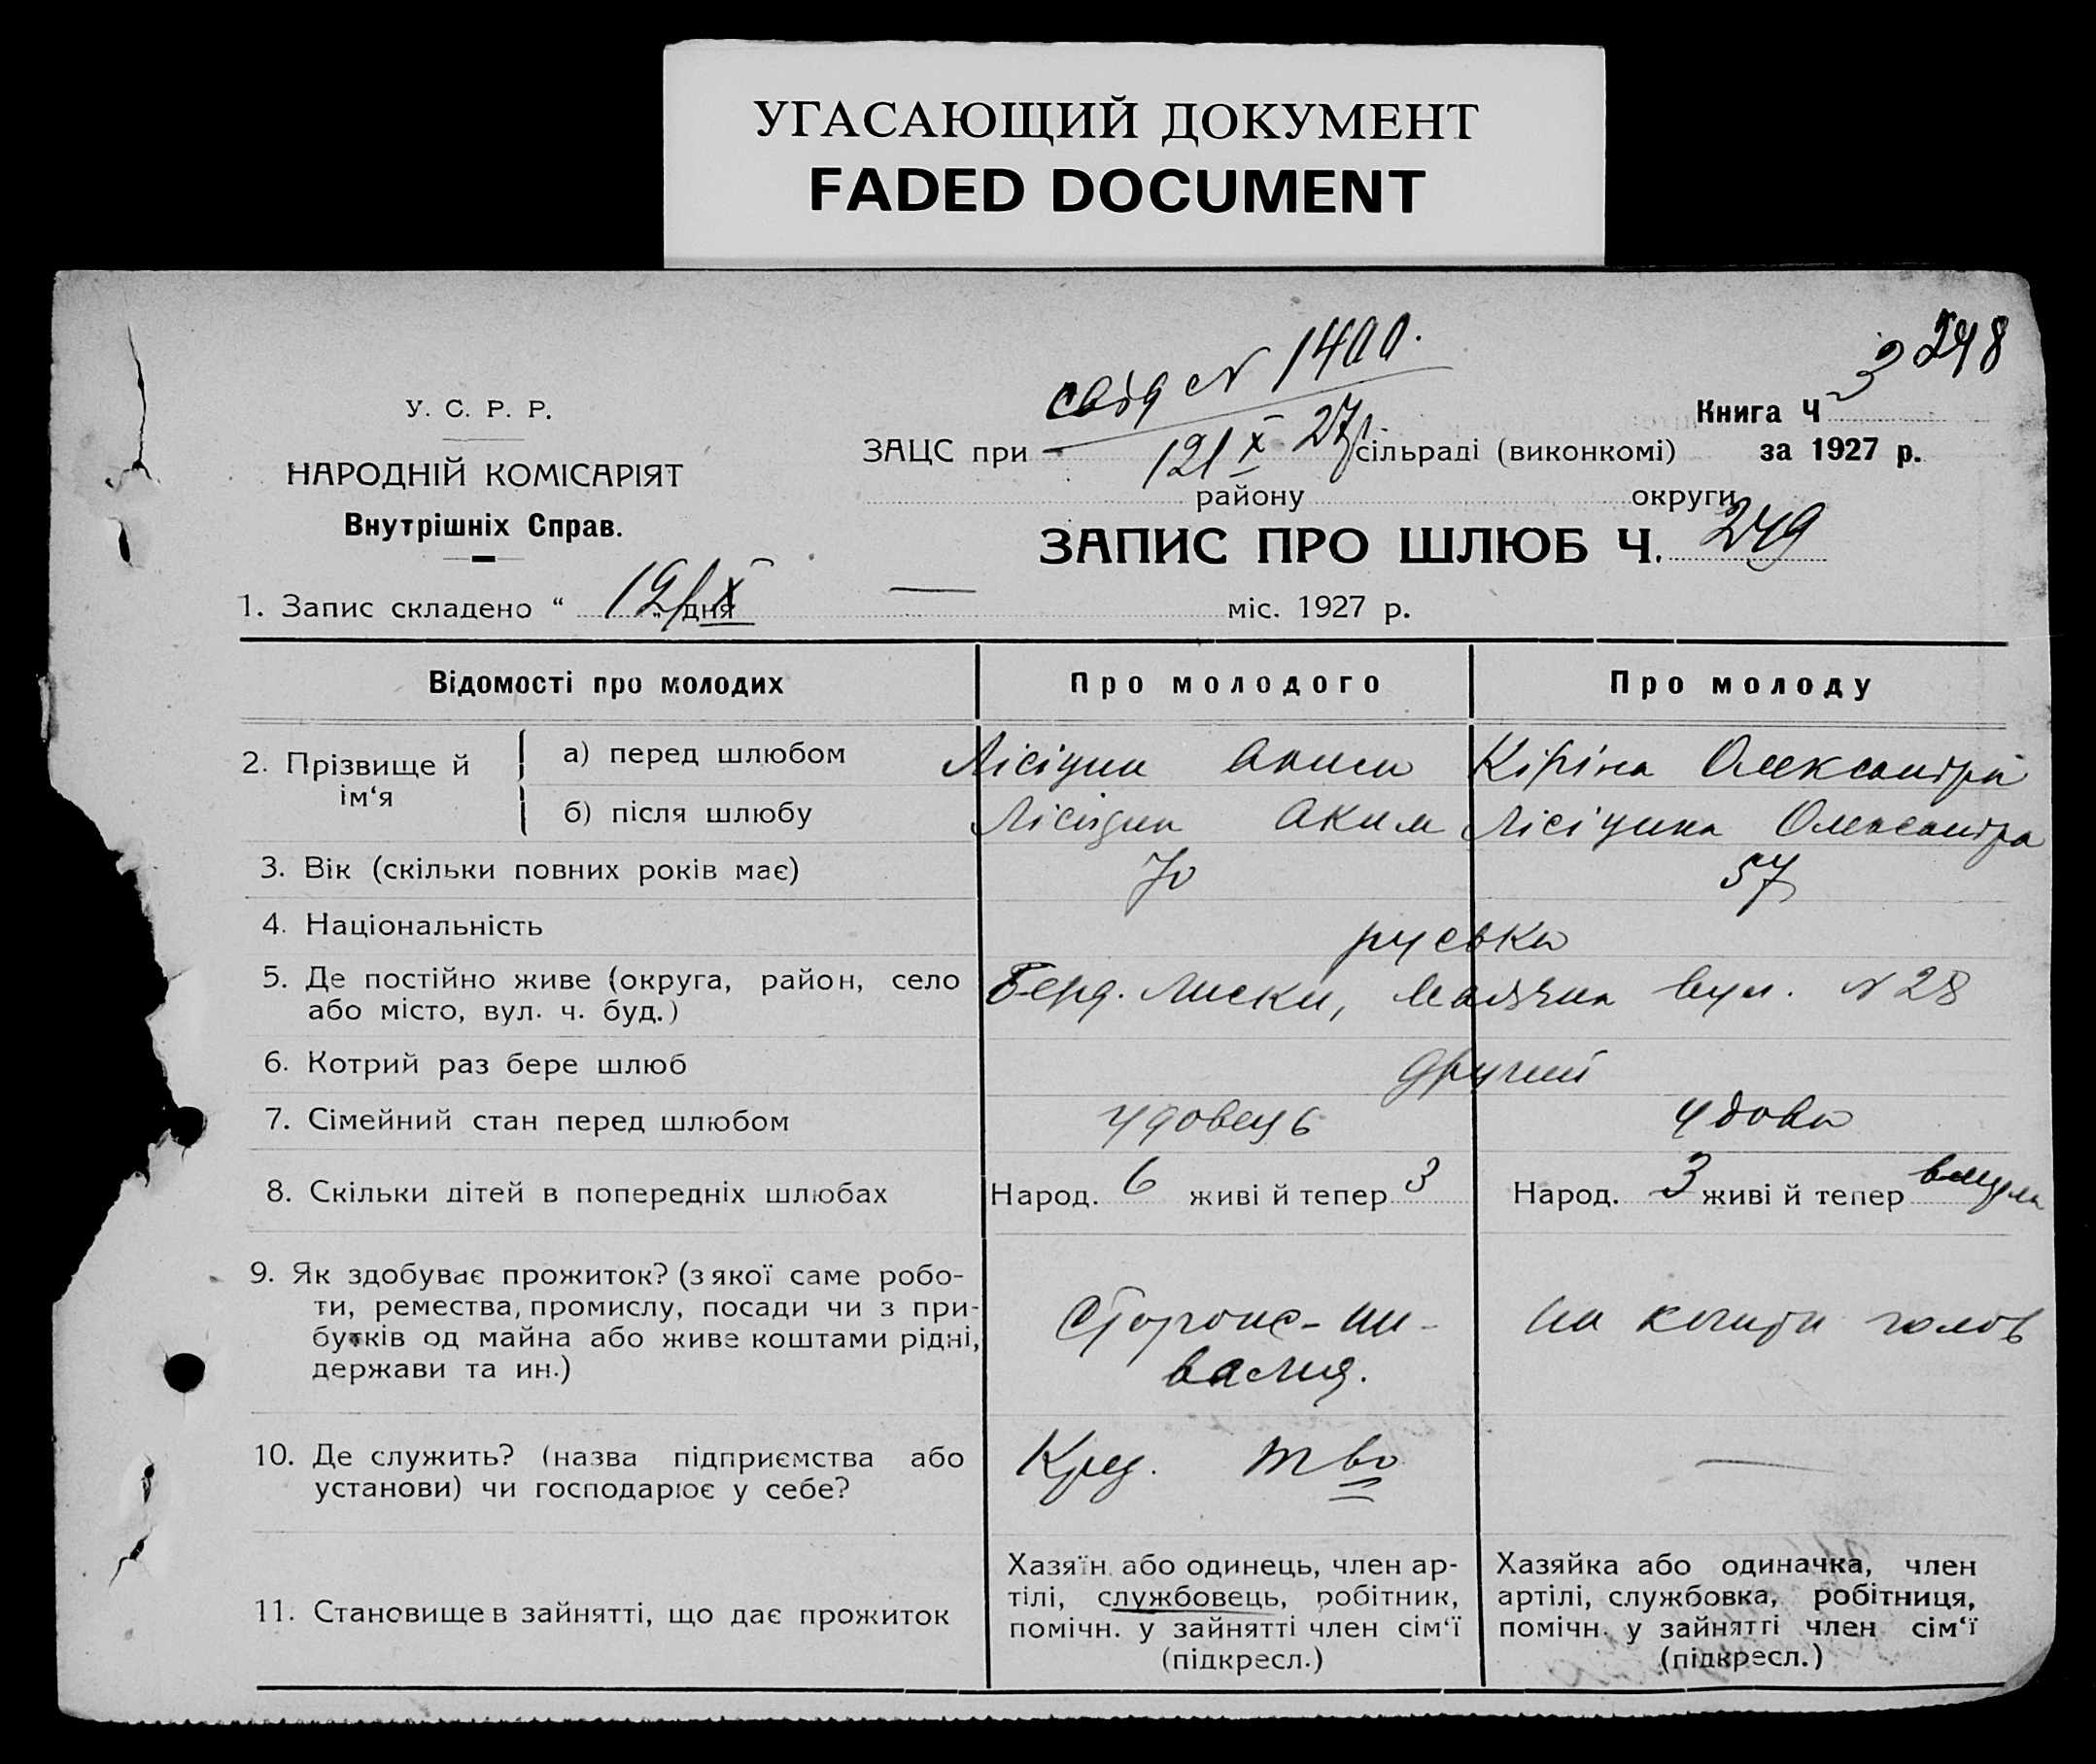 УГАСАЮЩИЙ ДОКУМЕНТ
FADED DOCUMENT
248
свід N 1400.
12/X 27
У. С. Р. Р.
НАРОДНІЙ КОМІСАРІЯТ
Внутрішніх Справ.
Книга Ч 3
за 1927 р.
ЗАЦС при сільраді (виконкомі)
району округи
ЗАПИС ПРО ШЛЮБ Ч. 249
1. Запис складено “ 12/X „ дня — міс. 1927 р.
Відомості про молодих Про молодого Про молоду
2. Прізвище й ім‘я
а) перед шлюбом Лісіцин Аким Кіріна Олександра
б) після шлюбу Лісіцин Аким Лісіцина Олександра
3. Вік (скільки повних років має) 70 57
4. Національність руська
5. Де постійно живе (округа, район, село
або місто, вул. ч. буд.) Берд. Лиски, вул. N 28
6. Котрий раз бере шлюб другий
7. Сімейний стан перед шлюбом удовець удова
8. Скільки дітей в попередніх шлюбах Народ. 6 живі й тепер 3 Народ. 3 живі й тепер
9. Як здобуває прожиток? (з якої саме робо-
ти, ремества, промислу, посади чи з при-
бутків од майна або живе коштами рідні,
держави та ин.)
на кошти
10. Де служить? (назва підприємства або
установи) чи господарює у себе?
Кред. т во —
11. Становище в зайнятті, що дає прожиток
Хазяїн або одинець, член ар-
тілі, службовець, робітник,
помічн. у зайнятті член сім‘ї
(підкресл.)
Хазяйка або одиначка, член
артілі, службовка, робітниця,
помічн. у зайнятті член сім‘ї
(підкресл.)